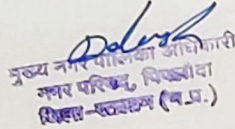 मुख्य नगर पालिका अधिकारी
नगर परिषद, पिपलौदा
जिला-रतलाम (म.प्र.)